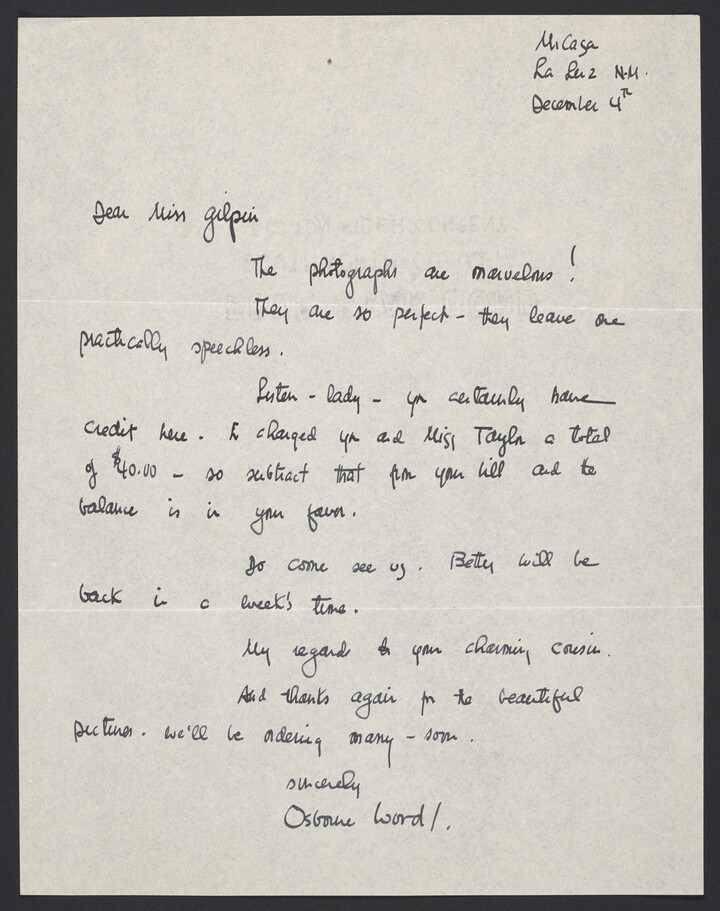 Mi Casa
La Luz N.M.
December 4th
Dear Miss Gilpin
The photographs are marvelous!
They are so perfect - they leave one
practically speechless.
Listen - lady - you certainly have
credit here. I charged you and Miss Taylor a total
of $40.00 - so subtract that from your bill and the
balance is in your favor.
Do come see us. Betty will be
back in a week's time.
My regards to your charming cousin.
And thanks again for the beautiful
pictures. We'll be ordering many - soon.
sincerely
Osborne